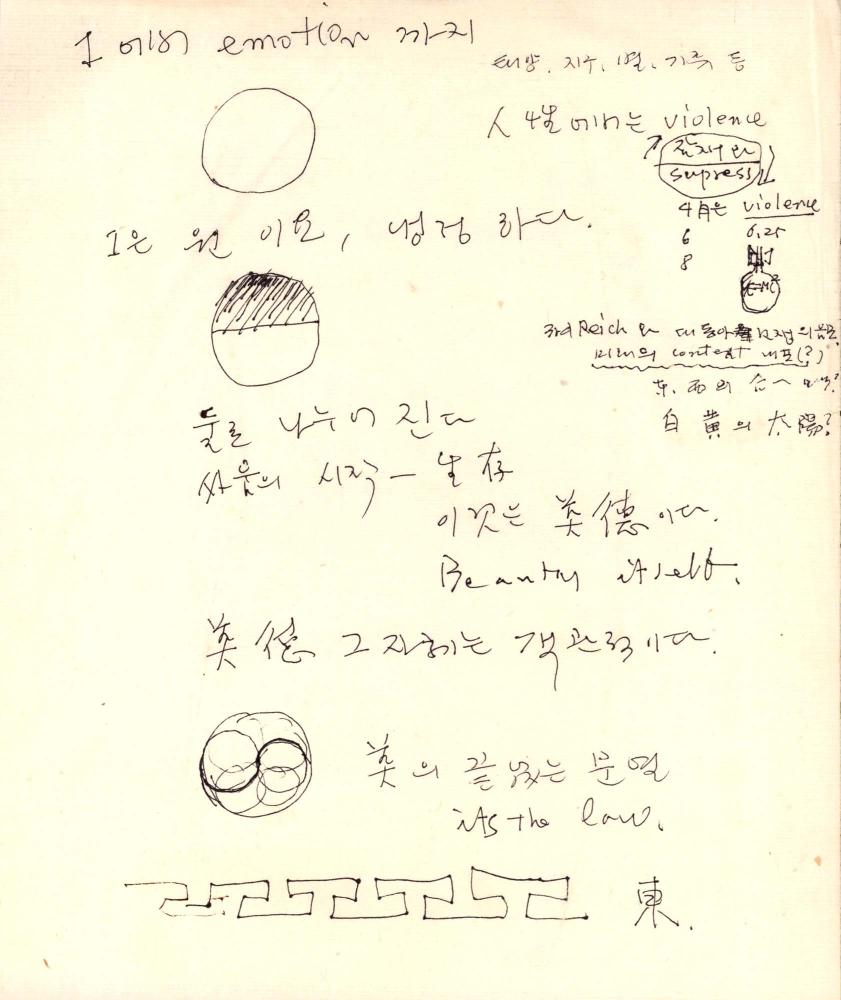 1 에서 emotion 까지
태양, 지구, 별, 가족 등
人 4生 에서는 violence
잠재 와
supress
4月은 violence
6 6.25
8
E=MC²
1은 원 이요, 냉정 하다.
Reich 와 대동아
미래의 context 내포(?)
東, 西의 合へ
白 黄의 太陽?
둘로 나누어 진다
싸움의 시작 – 生存
이것은 美德이다.
Beauty itself.
美德 그 자체는 객관적이다.
美의 끝없는 문열
its the law.
東.